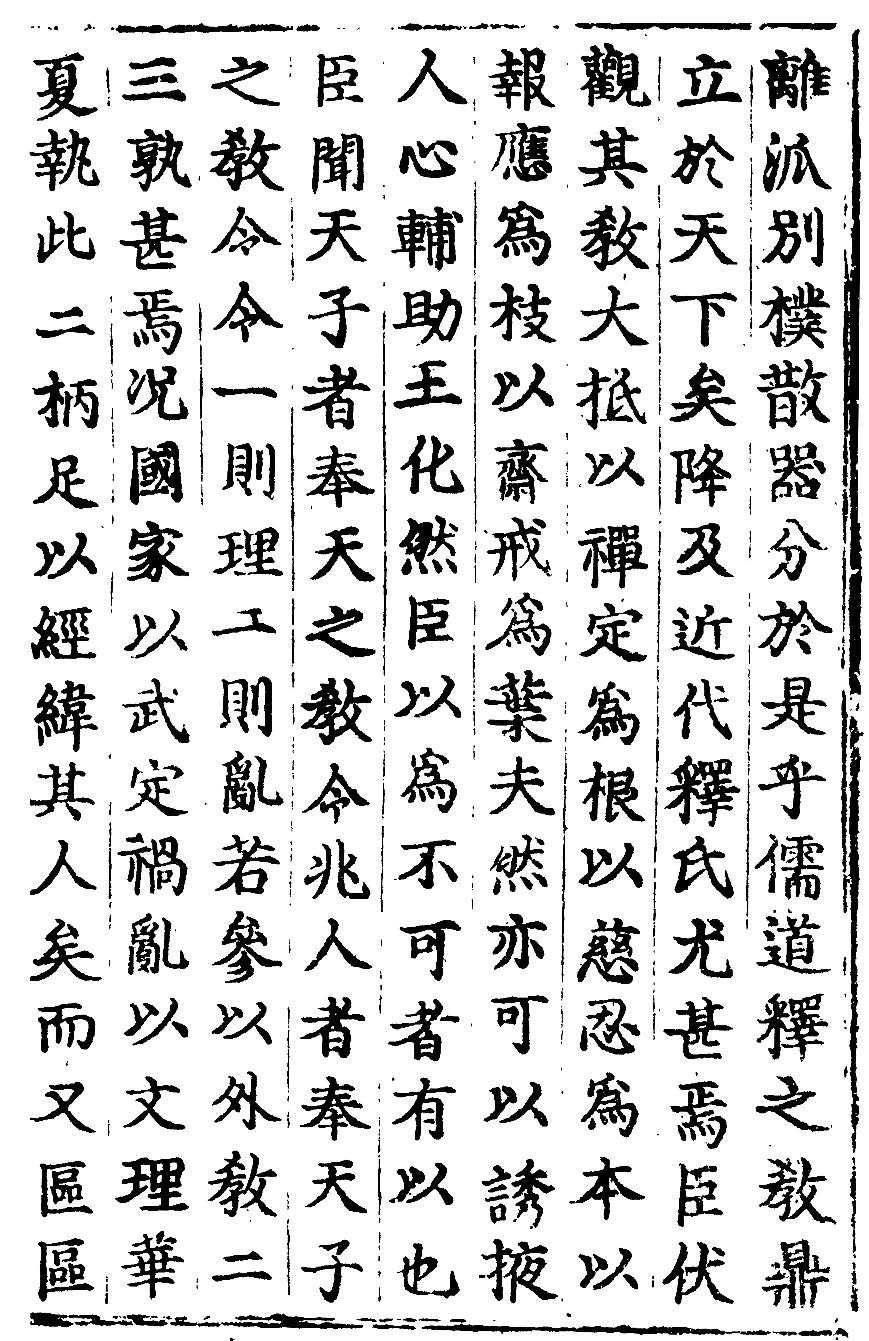 離派別樸散器分於是乎儒道釋之教鼎
立於天下矣降及近代釋氏尤甚焉臣伏
觀其教大抵以禪定爲根以慈忍爲本以
報應爲枝以齋戒爲葉夫然亦可以誘掖
人心輔助王化然臣以爲不可者有以也
臣聞天子者奉天之教令兆人者奉天子
之教令令一則理二則亂若參以外教二
三孰甚焉况國家以武定禍亂以文理華
夏執此二柄足以經緯其人矣而又區區